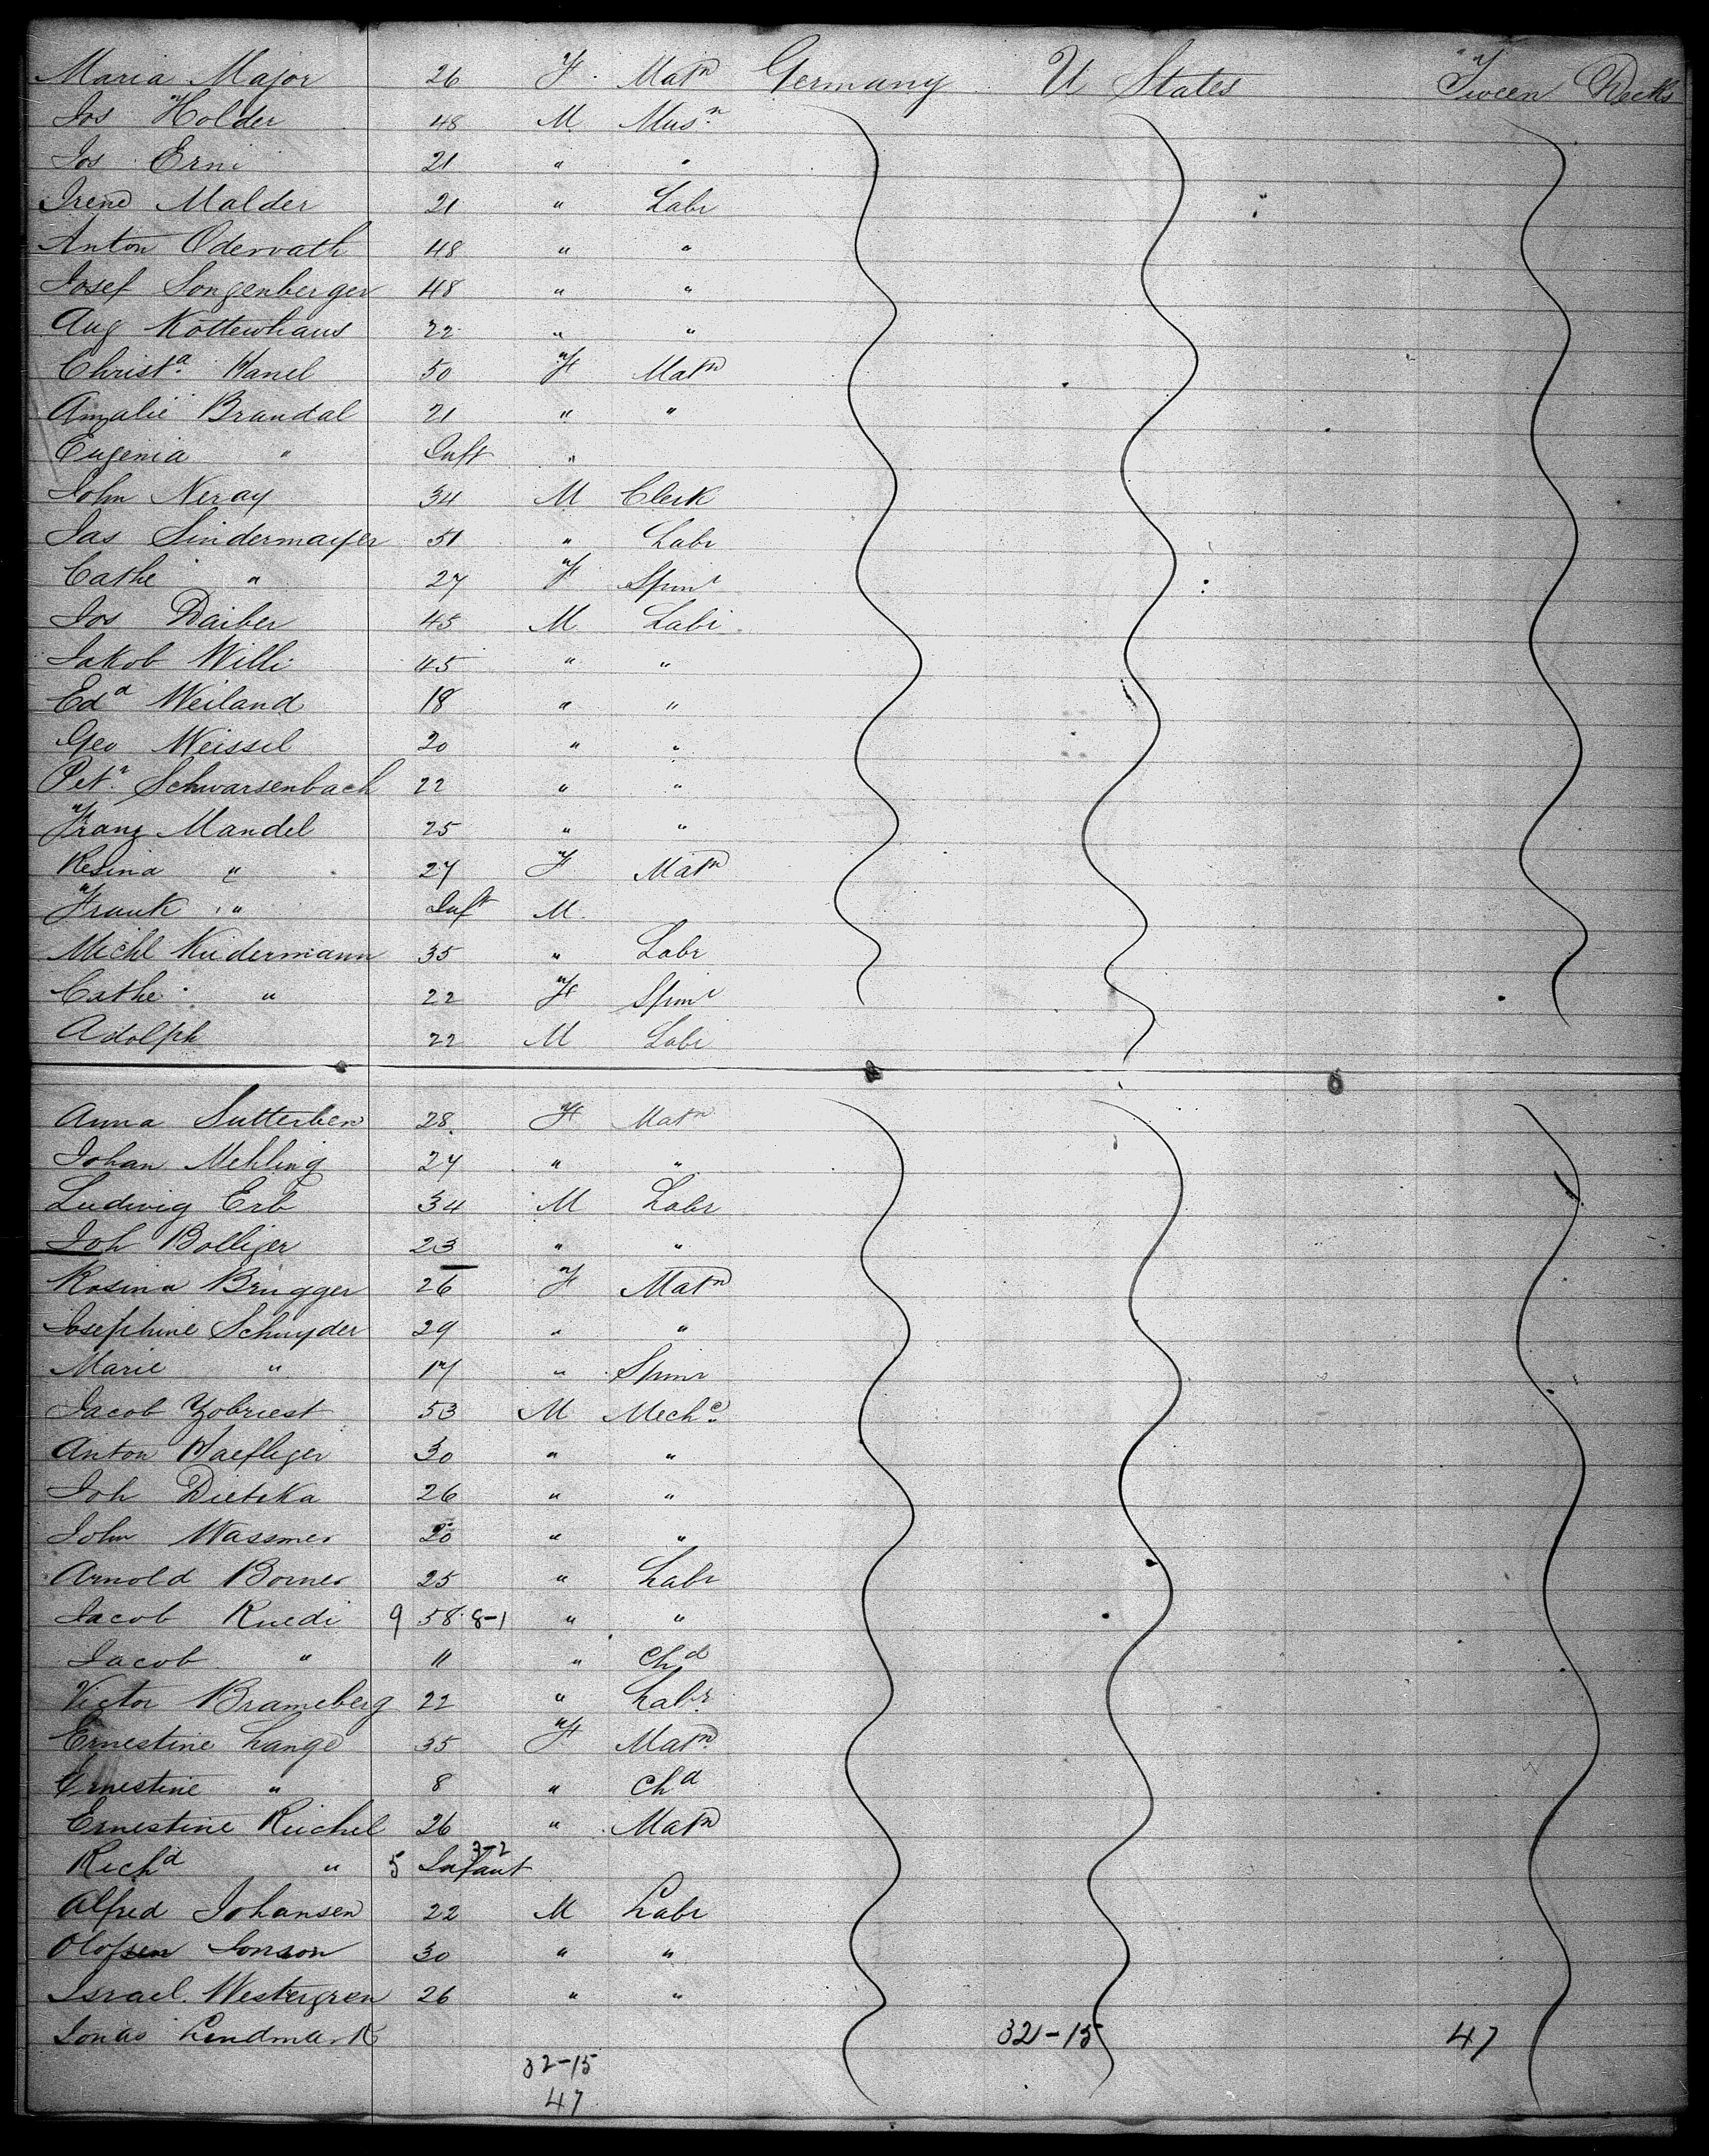 Maria Major 26 F. Matn Germany U States Tween Decks
Jos Holder 48 M Musn
Jos Erni 21 " "
Irene Malder 21 " Labr
Anton Odervath 48 " "
Josef Songenberger 48 " "
Aug Kottewhaus 22 " "
Christa Hanel 50 F Matn
Amalie Brandal 21 " "
Eugenia " Inft "
John Neray 34 M Clerk
Jas Lindermayer 51 " Labr
Cathe " 27 F Spinr
Jos Daiber 45 M Labr
Jakob Willi 45 " "
Edd Weiland 18 " "
Geo Weissel 20 " "
Petr Schwarsenbach 22 " "
Franz Mandel 25 " "
Resina " 27 F Matn
Frank " Inft M
Michl Kudermann 35 " Labr
Cathe " 22 F Spinr
Adolph 22 M Labr
Anna Sutterben 28 F Matn
Johan Mehling 27 " "
Ludwig Erb 34 M Labr
Joh Bolliger 23 " "
Rosina Brugger 26 F Matn
Josephine Schnyder 29 " "
Marie " 17 " Spinr
Jacob Zobriest 53 M Mechc
Anton Haefliger 30 " "
Joh Dieteka 26 " "
John Wassmer 20 " "
Arnold Borner 25 " Labr
Jacob Ruedi 9 58 8-1 " "
Jacob " 11 " Chd
Victor Brameberg 22 " Labr
Ernestine Lange 35 F Matn
Ernestine " 8 " Chd
Ernestine Reichel 26 " Matn
Richd " 5 Infant 3-2
Alfred Johansen 22 M Labr
Olofsen Jonson 30 " "
Israel Westergren 26 " "
Jonas Lindmark 32-15 47
32-15
47